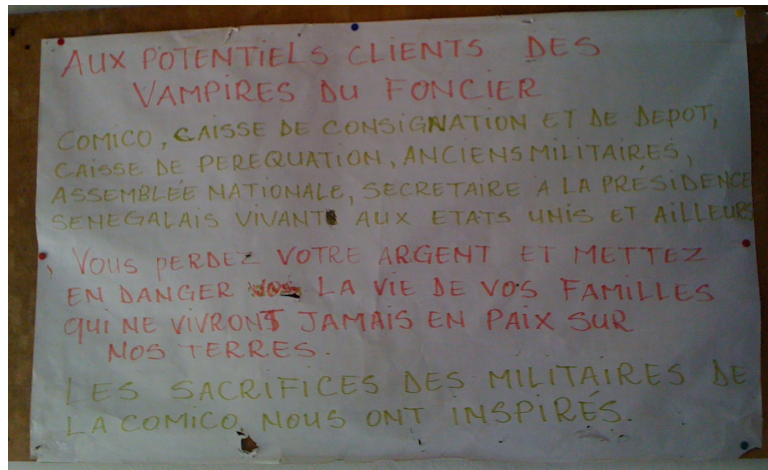 AUX POTENTIELS CLIENTS DES
VAMPIRES DU FONCIER
COMICO, CAISSE DE CONSIGNATION ET DE DEPOT,
CAISSE DE PEREQUATION, ANCIENS MILITAIRES,
ASSEMBLÉE NATIONALE, SECRETAIRE A LA PRÉSIDENCE
SENEGALAIS VIVANT AUX ETATS UNIS ET AILLEURS
, VOUS PERDEZ VOTRE ARGENT ET METTEZ
EN DANGER LA VIE DE VOS FAMILLES
QUI NE VIVRONT JAMAIS EN PAIX SUR
NOS TERRES.
LES SACRIFICES DES MILITAIRES DE
LA COMICO NOUS ONT INSPIRÉS.